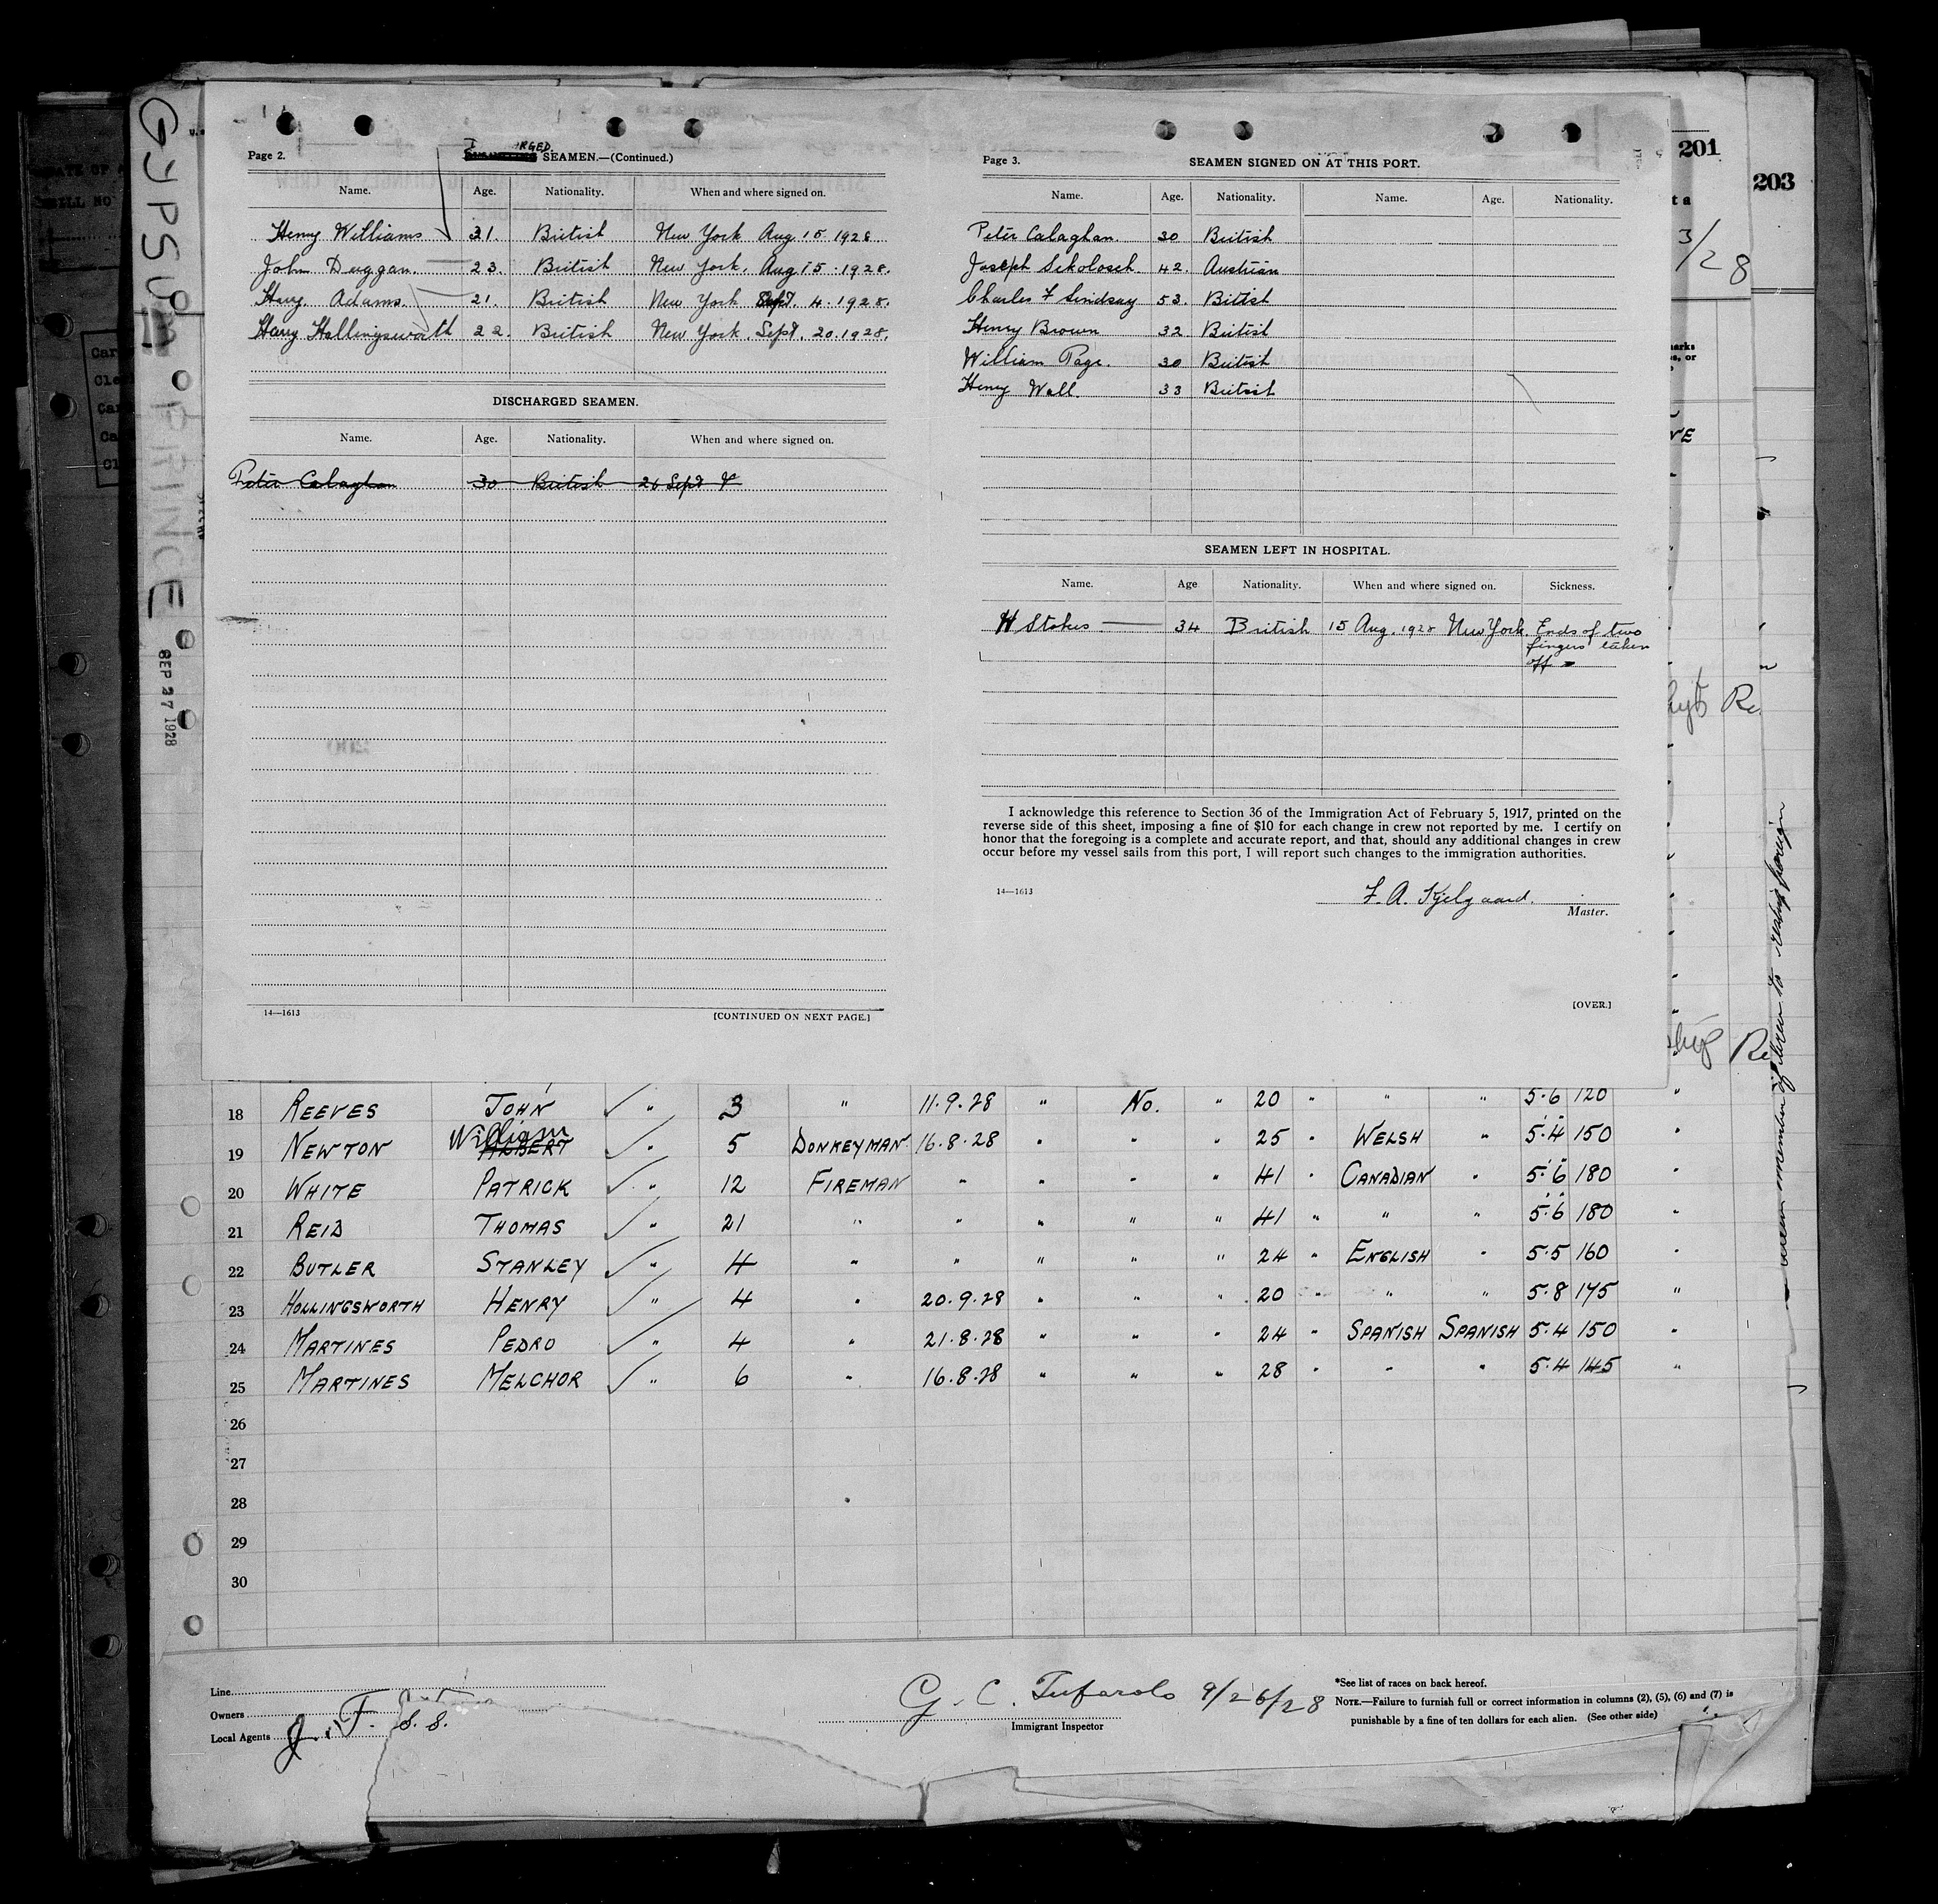 GYPSUM PRINCE
SEP 27 1928
201
203
3/28
Page 2.
RGED. SEAMEN.—(Continued.)
Name. Age. Nationality. When and where signed on.
Henry Williams 31. British New York Aug. 15 1928.
John Duggan. 23. British New York. Aug 15. 1928.
Harry Adams. 21. British New York Sept. 4. 1928.
Harry Hollingsworth 22. British New York. Sept. 20. 1928.
DISCHARGED SEAMEN.
Name. Age. Nationality. When and where signed on.
Peter Calaghan 30 British 26 Sept
14—1613
[CONTINUED ON NEXT PAGE.]
Page 3.
SEAMEN SIGNED ON AT THIS PORT.
Name. Age. Nationality. Name. Age. Nationality.
Peter Calaghan. 30 British
Joseph Sekolosch. 42. Austrian
Charles F Lindsay 53. British
Henry Brown 32 British
William Page. 30 British
Henry Wall. 33 British
SEAMEN LEFT IN HOSPITAL.
Name. Age Nationality. When and where signed on. Sickness.
H Stokes 34 British 15 Aug. 1928 New York. Ends of two
fingers taken
off
I acknowledge this reference to Section 36 of the Immigration Act of February 5, 1917, printed on the
reverse side of this sheet, imposing a fine of $10 for each change in crew not reported by me. I certify on
honor that the foregoing is a complete and accurate report, and that, should any additional changes in crew
occur before my vessel sails from this port, I will report such changes to the immigration authorities.
14—1613
F. A. Kjelgaard.
Master.
[OVER.]
18 REEVES JOHN ✓ " 3 " 11.9.28 " No. " 20 " " " 5.6 120 "
19 NEWTON William ALBERT ✓ " 5 DONKEYMAN 16.8.28 " " " 25 " WELSH " 5.4 150 "
20 WHITE PATRICK ✓ " 12 FIREMAN " " " " 41 " CANADIAN " 5.6 180 "
21 REID THOMAS ✓ " 21 " " " " " 41 " " " 5.6 180 "
22 BUTLER STANLEY ✓ " 4 " " " " " 24 " ENGLISH " 5.5 160 "
23 HOLLINGSWORTH HENRY ✓ " 4 " 20.9.28 " " " 20 " " " 5.8 175 "
24 MARTINES PEDRO ✓ " 4 " 21.8.28 " " " 24 " SPANISH SPANISH 5.4 150 "
25 MARTINES MELCHOR ✓ " 6 " 16.8.28 " " " 28 " " " 5.4 145 "
26
27
28
29
30
Line
Owners
Local Agents J. F. S. S.
G. C. Tufarolo 9/26/28
Immigrant Inspector
*See list of races on back hereof.
NOTE.—Failure to furnish full or correct information in columns (2), (5), (6) and (7) is
punishable by a fine of ten dollars for each alien. (See other side)
member of crew to reship foreign